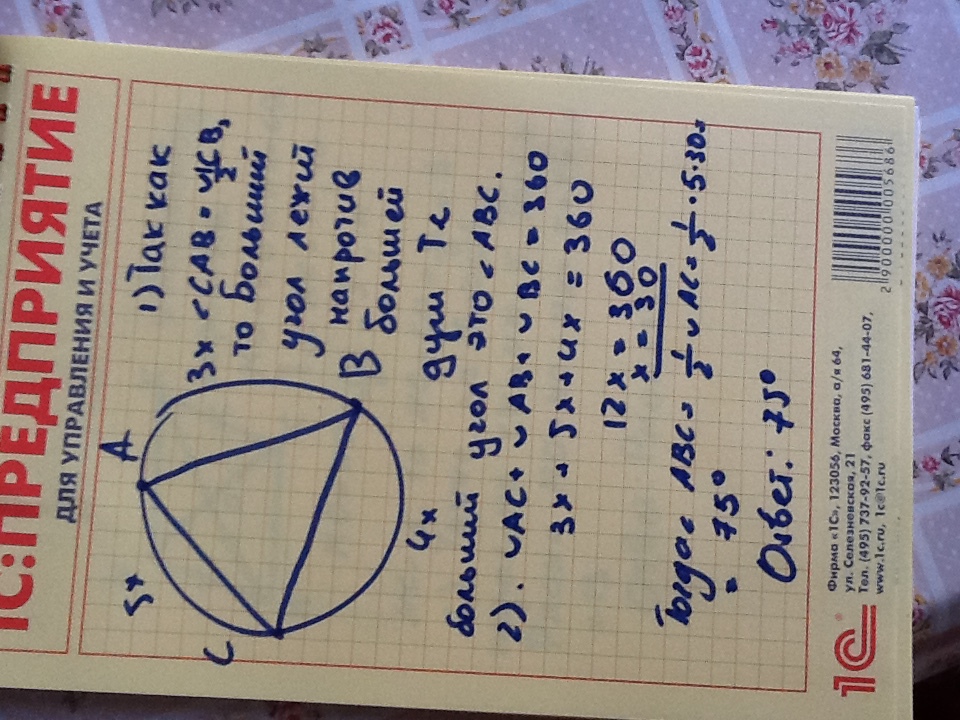 1С:ПРЕДПРИЯТИЕ
ДЛЯ УПРАВЛЕНИЯ И УЧЕТА
5x
A
3x
C
B
4x
1) Так как
<CAB = ◡CB/2,
то больший
угол лежит
напротив
большей
дуги Тс
больший угол это <ABC.
2). ◡AC + ◡AB + ◡BC = 360
3x + 5x + 4x = 360
12x = 360
x = 30
Тогда < ABC = 1/2 ◡AC = 1/2 · 5 · 30 =
= 75°
Ответ: 75°
1С®
Фирма «1С», 123056, Москва, а/я 64,
ул. Селезневская, 21
Тел. (495) 737-92-57, факс (495) 681-44-07,
www.1c.ru, 1c@1c.ru
2 900000 005686